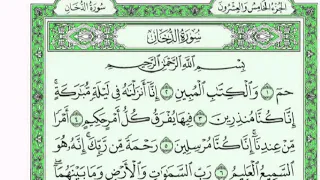 الجزء الخامس والعشرون
سورة الدخان
سُورَةُ الدُّخَانِ
بِسْمِ اللَّهِ الرَّحْمَٰنِ الرَّحِيمِ
حمٓ ۝١ وَالْكِتَٰبِ الْمُبِينِ ۝٢ إِنَّآ أَنزَلْنَٰهُ فِى لَيْلَةٍ مُّبَٰرَكَةٍ ۚ
إِنَّا كُنَّا مُنذِرِينَ ۝٣ فِيهَا يُفْرَقُ كُلُّ أَمْرٍ حَكِيمٍ ۝٤ أَمْرًا
مِّنْ عِندِنَآ ۚ إِنَّا كُنَّا مُرْسِلِينَ ۝٥ رَحْمَةً مِّن رَّبِّكَ ۚ إِنَّهُۥ هُوَ
السَّمِيعُ الْعَلِيمُ ۝٦ رَبِّ السَّمَٰوَٰتِ وَالْأَرْضِ وَمَا بَيْنَهُمَآ ۖ